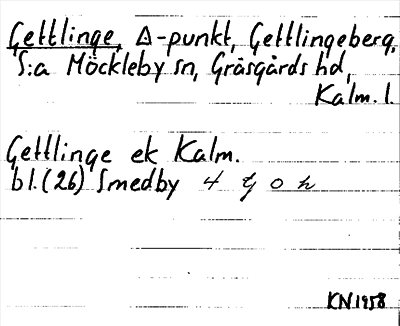 Gettlinge, △-punkt, Gettlingeberg,
S:a Möckleby sn, Gräsgårds hd,
Kalm. l.
Gettlinge ek Kalm.
bl. (26) Smedby 4 g o h
KN 1958